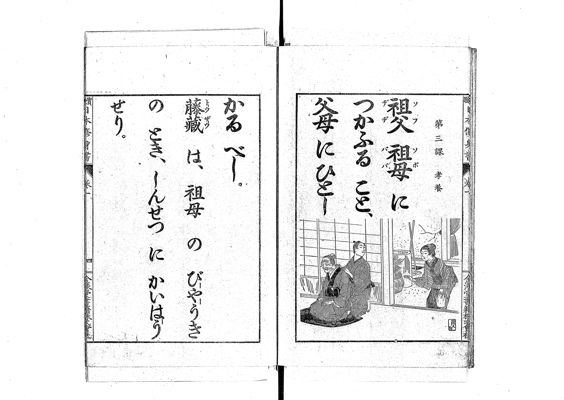 第三課 孝養
ソフ ソボ
祖父 祖母 に
ヂヂ ババ
つかふる こと、
父母 に ひとし
かる べし。
とう ざう
藤藏 は、祖母 の びやうき
の とき、しんせつ に かいはう
せり。
四